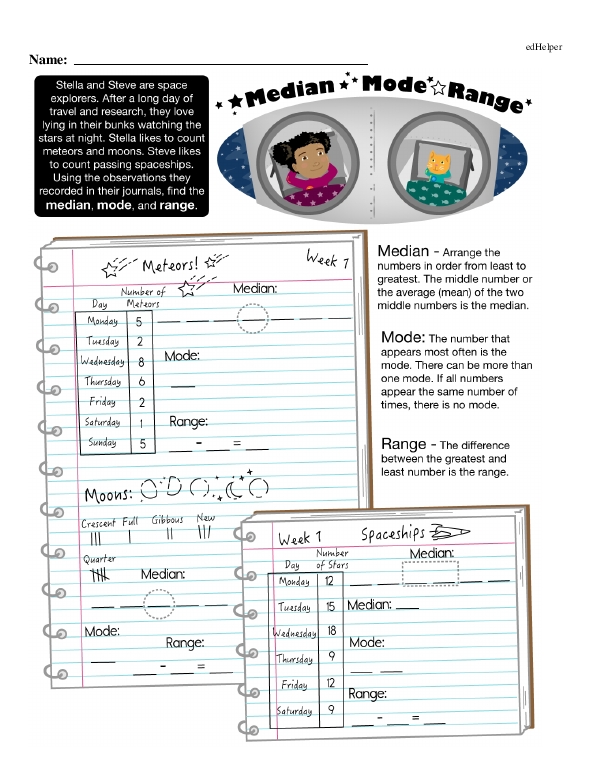 edHelper
Name:
Stella and Steve are space
explorers. After a long day of
travel and research, they love
lying in their bunks watching the
stars at night. Stella likes to count
meteors and moons. Steve likes
to count passing spaceships.
Using the observations they
recorded in their journals, find the
median, mode, and range.
Median Mode Range
Meteors!
Week 1
Number of
Day Meteors
Monday 5
Tuesday 2
Wednesday 8
Thursday 6
Friday 2
Saturday 1
Sunday 5
Median:
Mode:
Range:
- =
Median - Arrange the
numbers in order from least to
greatest. The middle number or
the average (mean) of the two
middle numbers is the median.
Mode: The number that
appears most often is the
mode. There can be more than
one mode. If all numbers
appear the same number of
times, there is no mode.
Range - The difference
between the greatest and
least number is the range.
Moons:
Crescent Full Gibbous New
Quarter
Median:
Mode:
Range:
- =
Week 1 Spaceships
Number
Day of Stars
Monday 12
Tuesday 15
Wednesday 18
Thursday 9
Friday 12
Saturday 9
Median:
Median:
Mode:
Range:
- =